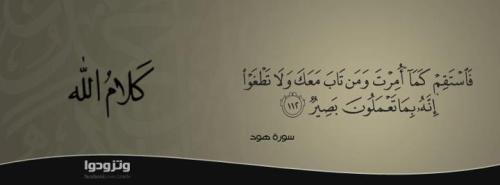 كَلَامُ اللَّه
فَٱسْتَقِمْ كَمَآ أُمِرْتَ وَمَن تَابَ مَعَكَ وَلَا تَطْغَوْا۟
إِنَّهُۥ بِمَا تَعْمَلُونَ بَصِيرٌ ١١٢
سورة هود
وتزودوا